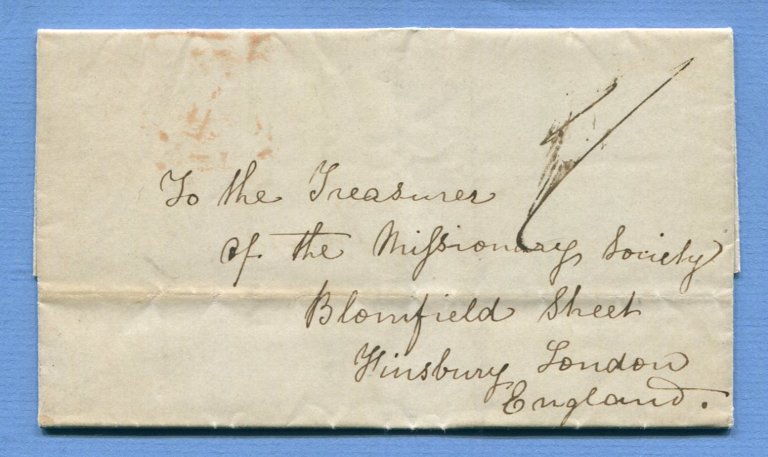 To the Treasurer
of the Miſsionary Society
Blomfield Street
Finsbury London
England.